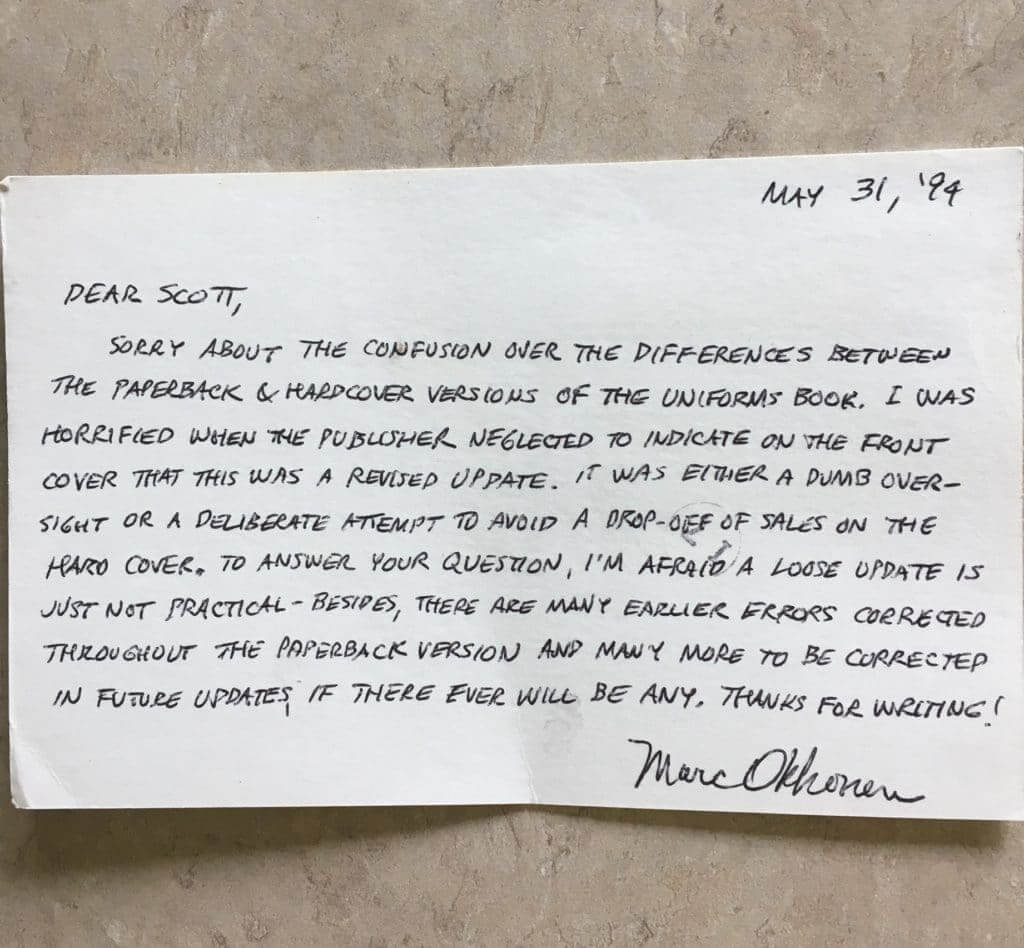 MAY 31, '94
DEAR SCOTT,
SORRY ABOUT THE CONFUSION OVER THE DIFFERENCES BETWEEN
THE PAPERBACK & HARDCOVER VERSIONS OF THE UNIFORMS BOOK. I WAS
HORRIFIED WHEN THE PUBLISHER NEGLECTED TO INDICATE ON THE FRONT
COVER THAT THIS WAS A REVISED UPDATE. IT WAS EITHER A DUMB OVER-
SIGHT OR A DELIBERATE ATTEMPT TO AVOID A DROP-OFF OF SALES ON THE
HARD COVER. TO ANSWER YOUR QUESTION, I'M AFRAID A LOOSE UPDATE IS
JUST NOT PRACTICAL - BESIDES, THERE ARE MANY EARLIER ERRORS CORRECTED
THROUGHOUT THE PAPERBACK VERSION AND MANY MORE TO BE CORRECTED
IN FUTURE UPDATES, IF THERE EVER WILL BE ANY. THANKS FOR WRITING!
Marc Okkonen